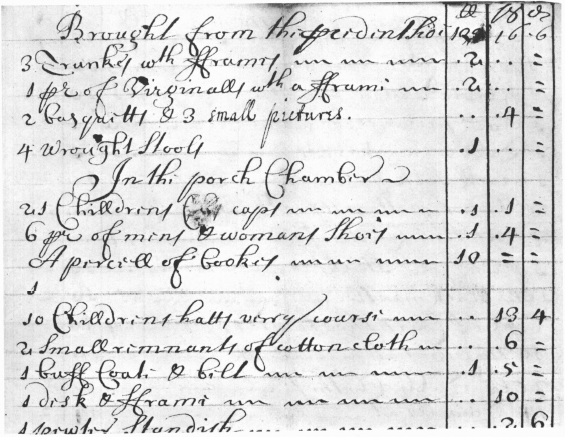 ll s d
Brought from the precedent side 16 6
3 Trunkes wth fframes 2 .. =
1 pr of Virginalls wth a fframe 2 .. =
2 basquetts & 3 small pictures. .. 4 =
4 wrought Stools 1 .. =
In the porch Chamber
21 Chilldrens caps 1 1 =
6 pr of mens & womans Shoes 1 4 =
A percell of bookes 10 = =
1
10 Chilldrens hatts verry coarse .. 13 4
2 small remnants of cotton cloth .. 6 =
1 buff Coate & belt 1 5 =
1 desk & fframe .. 10 =
1 pewter Standish .. 2 6